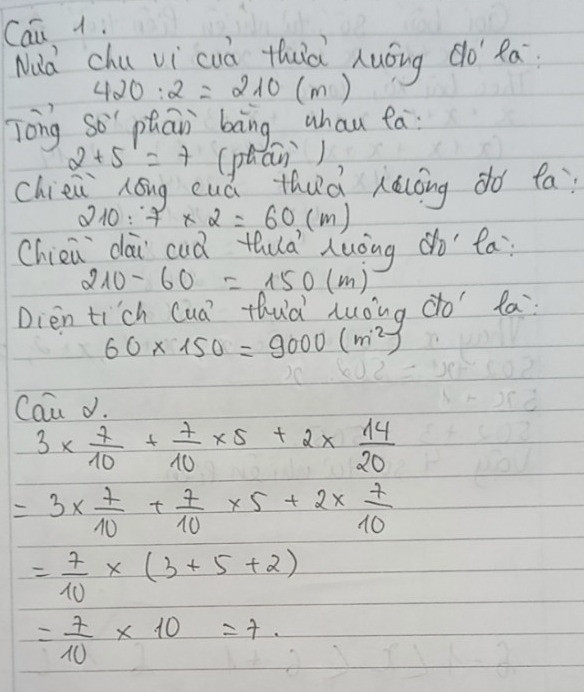 Câu 1.
Nửa chu vi của thửa ruộng đó là:
420 : 2 = 210 (m)
Tổng số phần bằng nhau là:
2 + 5 = 7 (phần)
Chiều rộng của thửa ruộng đó là:
210 : 7 × 2 = 60 (m)
Chiều dài của thửa ruộng đó là:
210 - 60 = 150 (m)
Diện tích của thửa ruộng đó là:
60 × 150 = 9000 (m²)
Câu 2.
3 × 7/10 + 7/10 × 5 + 2 × 14/20
= 3 × 7/10 + 7/10 × 5 + 2 × 7/10
= 7/10 × (3 + 5 + 2)
= 7/10 × 10 = 7.